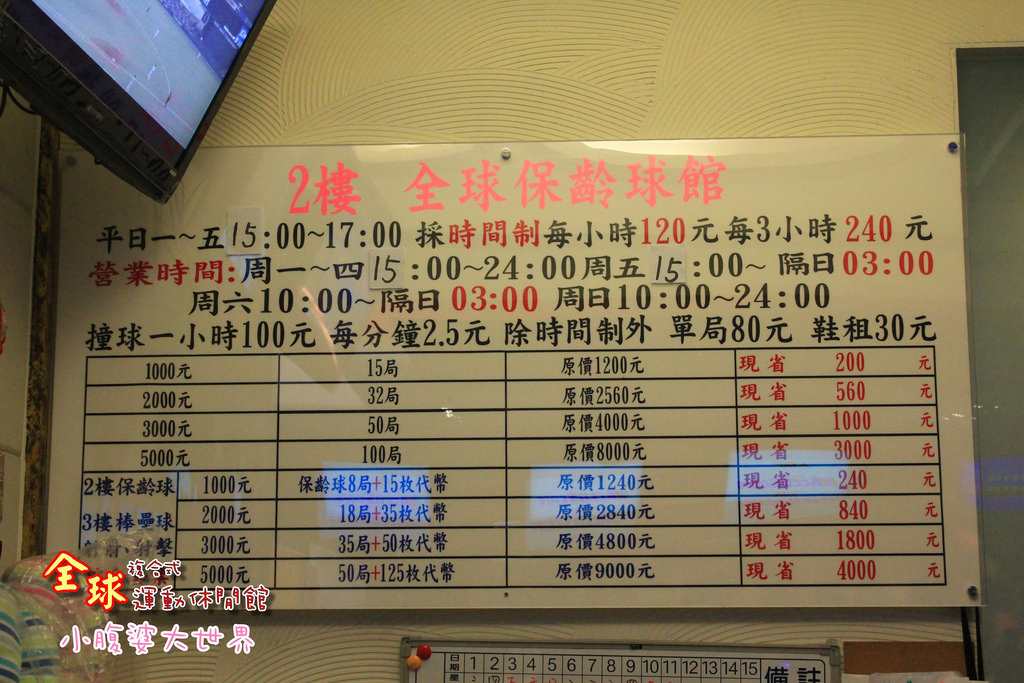 2樓 全球保齡球館
平日一~五15:00~17:00 採時間制每小時120元每3小時240元
營業時間:周一~四15:00~24:00周五15:00~隔日03:00
周六10:00~隔日03:00 周日10:00~24:00
撞球一小時100元 每分鐘2.5元 除時間制外 單局80元 鞋租30元
1000元 15局 原價1200元 現省 200 元
2000元 32局 原價2560元 現省 560 元
3000元 50局 原價4000元 現省 1000 元
5000元 100局 原價8000元 現省 3000 元
2樓保齡球 1000元 保齡球8局+15枚代幣 原價1240元 現省 240 元
3樓棒壘球 2000元 18局+35枚代幣 原價2840元 現省 840 元
射擊 3000元 35局+50枚代幣 原價4800元 現省 1800 元
5000元 50局+125枚代幣 原價9000元 現省 4000 元
全球複合式運動休閒館
小腹婆大世界
日期 1 2 3 4 5 6 7 8 9 10 11 12 13 14 15 備註